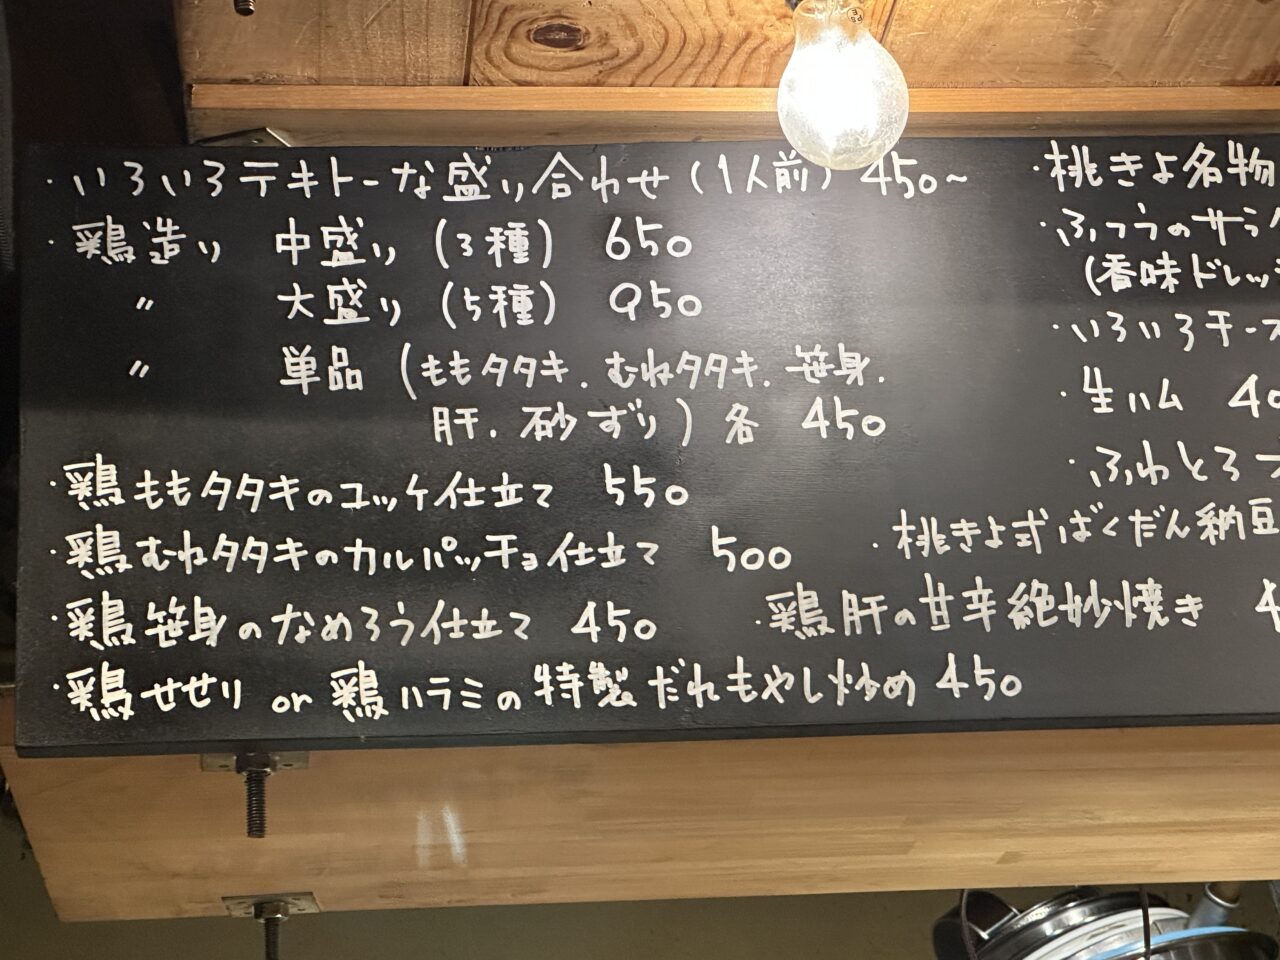 ・いろいろテキトーな盛り合わせ(1人前) 450~
・鶏造り 中盛り(3種) 650
〃 大盛り(5種) 950
〃 単品(ももタタキ.むねタタキ.笹身.
肝.砂ずり)各 450
・鶏ももタタキのユッケ仕立て 550
・鶏むねタタキのカルパッチョ仕立て 500
・鶏笹身のなめろう仕立て 450
・鶏せせり or 鶏ハラミの特製だれもやし炒め 450
・桃きよ名物
・ふつうのサラ
(香味ドレッ
・いろいろチー
・生ハム 40
・ふわとろ
・桃きよ式ばくだん納豆
・鶏肝の甘辛絶妙焼き 4